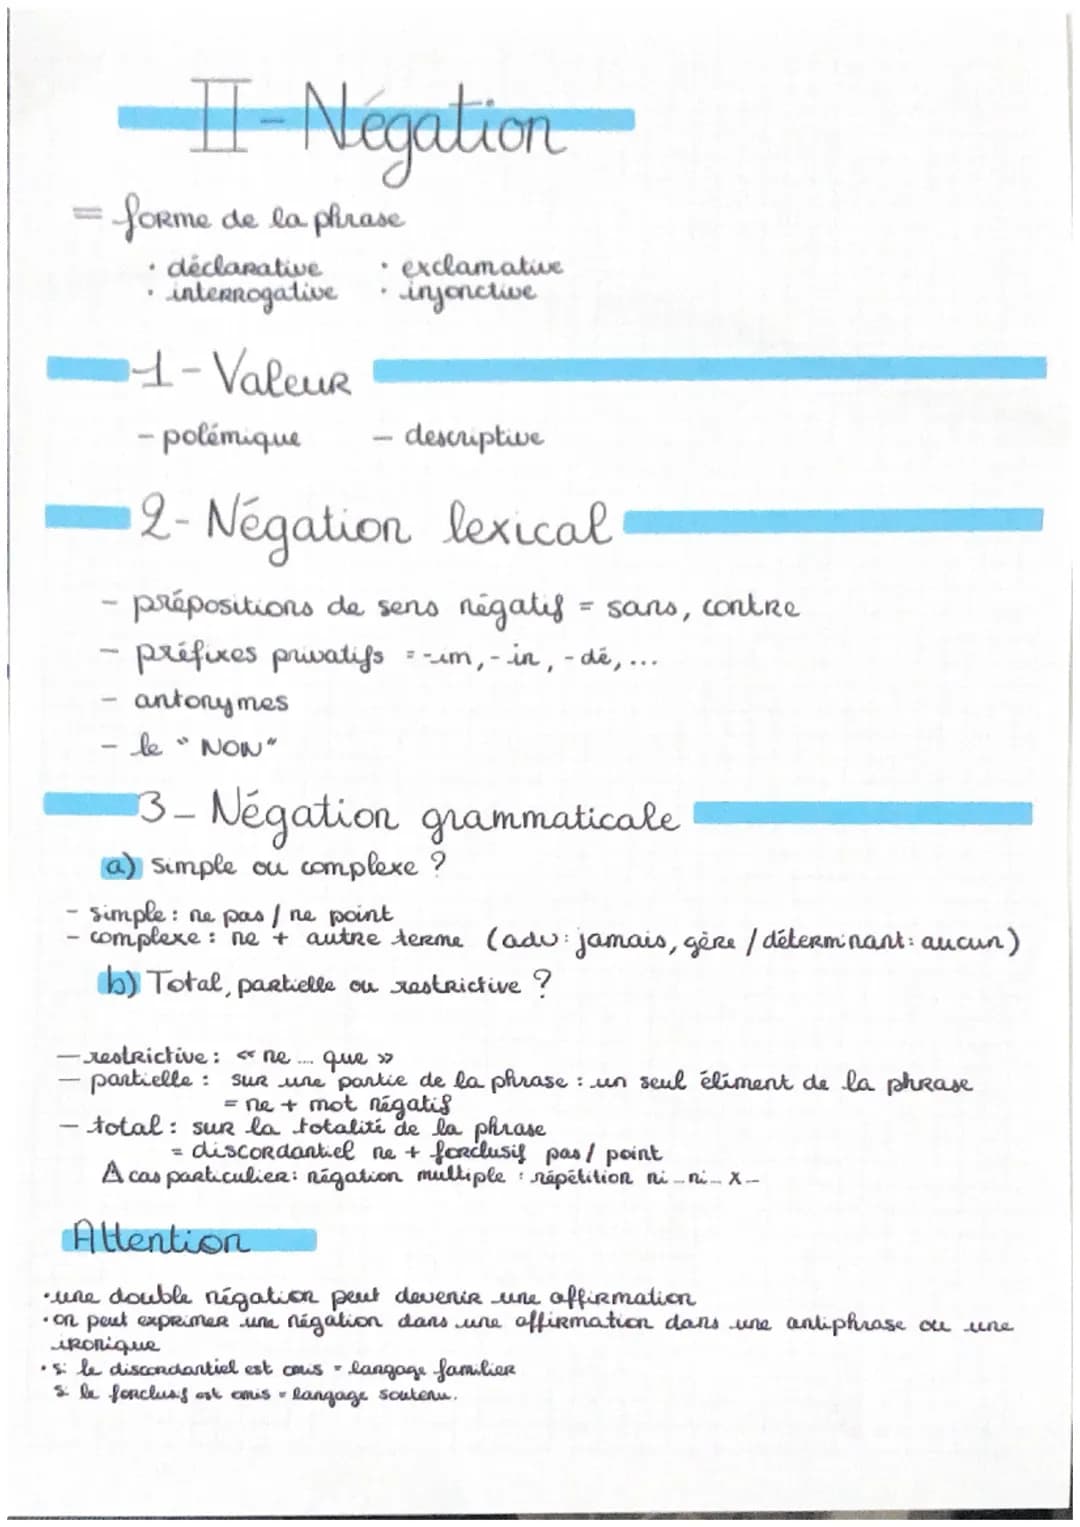 II - Négation
= forme de la phrase
· déclarative · exclamative
· interrogative · injonctive
1 - Valeur
- polémique - descriptive
2 - Négation lexical
- prépositions de sens négatif = sans, contre
- préfixes privatifs = -im, - in, - dé, ...
- antonymes
- le " NON"
3 - Négation grammaticale
a) Simple ou complexe ?
- simple : ne pas / ne point
- complexe : ne + autre terme (adv : jamais, gère / déterminant : aucun)
b) Total, partielle ou restrictive ?
- restrictive : « ne ... que »
- partielle : sur une partie de la phrase : un seul élément de la phrase
= ne + mot négatif
- total : sur la totalité de la phrase
= discordantiel ne + forclusif pas / point
⚠ cas particulier : négation multiple : répétition ni ... ni ... x ...
Attention
· une double négation peut devenir une affirmation
· on peut exprimer une négation dans une affirmation dans une antiphrase ou une
ironique
· si le discordantiel est omis = langage familier
si le forclusif est omis = langage soutenu.